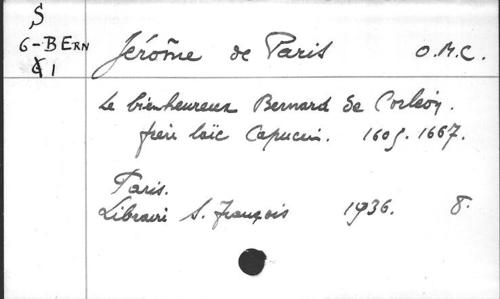 S
6-BERN
G1
Jérôme de Paris O.M.C.
Le bienheureux Bernard de Corleon.
frère laïc Capucin. 1605. 1667.
Paris.
Librairi S. François 1936. 8.